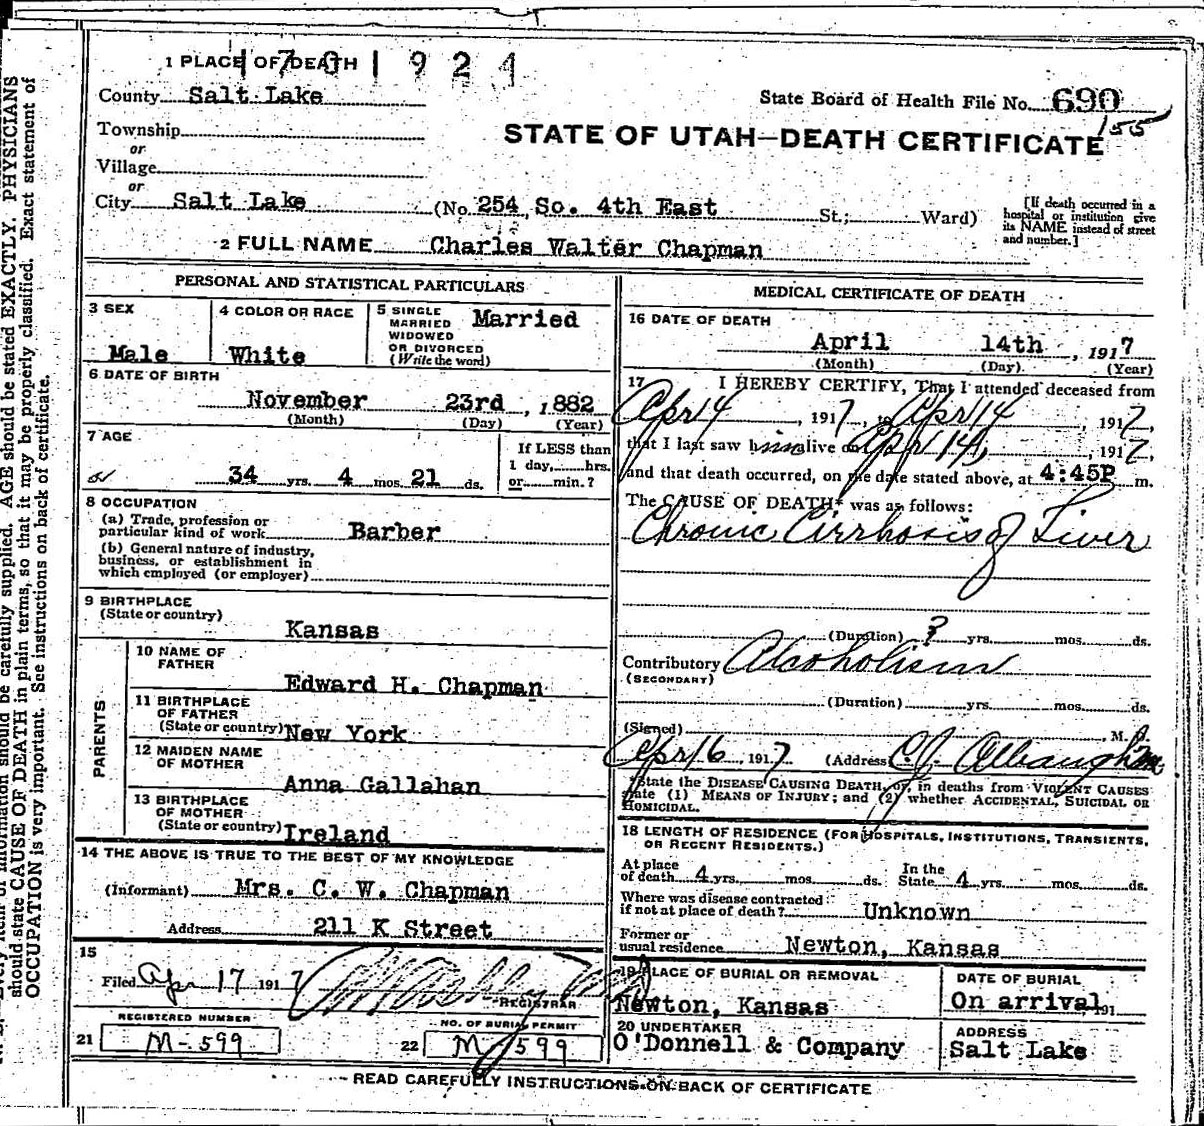 1 PLACE OF DEATH
1701924
County Salt Lake
State Board of Health File No. 690
155
Township
or
STATE OF UTAH—DEATH CERTIFICATE
Village
or
City Salt Lake (No. 254 So. 4th East St.; Ward)
[If death occurred in a hospital or institution give its NAME instead of street and number.]
2 FULL NAME Charles Walter Chapman
PERSONAL AND STATISTICAL PARTICULARS
3 SEX
Male
4 COLOR OR RACE
White
5 SINGLE
MARRIED
WIDOWED
OR DIVORCED
(Write the word)
Married
6 DATE OF BIRTH
November 23rd, 1882
(Month) (Day) (Year)
7 AGE
34 yrs. 4 mos. 21 ds.
If LESS than
1 day, hrs.
or min.?
8 OCCUPATION
(a) Trade, profession or
particular kind of work Barber
(b) General nature of industry,
business, or establishment in
which employed (or employer)
9 BIRTHPLACE
(State or country)
Kansas
PARENTS
10 NAME OF
FATHER
Edward H. Chapman
11 BIRTHPLACE
OF FATHER
(State or country) New York
12 MAIDEN NAME
OF MOTHER
Anna Gallahan
13 BIRTHPLACE
OF MOTHER
(State or country) Ireland
14 THE ABOVE IS TRUE TO THE BEST OF MY KNOWLEDGE
(Informant) Mrs. C. W. Chapman
Address 211 K Street
15
Filed Apr 17 1917
REGISTRAR
REGISTERED NUMBER
21 M-599
NO. OF BURIAL PERMIT
22 M-599
MEDICAL CERTIFICATE OF DEATH
16 DATE OF DEATH
April 14th, 1917
(Month) (Day) (Year)
17 I HEREBY CERTIFY, That I attended deceased from
Apr 14, 1917, to Apr 14, 1917,
that I last saw him alive on Apr 14, 1917,
and that death occurred, on the date stated above, at 4:45P m.
The CAUSE OF DEATH* was as follows:
Chronic Cirrhosis of Liver
(Duration) ? yrs. mos. ds.
Contributory Alcoholism
(SECONDARY)
(Duration) yrs. mos. ds.
(Signed) , M. D.
Apr 16, 1917 (Address) C. J. Albaugh
*State the DISEASE CAUSING DEATH, or, in deaths from VIOLENT CAUSES
state (1) MEANS OF INJURY; and (2) whether ACCIDENTAL, SUICIDAL OR
HOMICIDAL.
18 LENGTH OF RESIDENCE (FOR HOSPITALS, INSTITUTIONS, TRANSIENTS,
OR RECENT RESIDENTS.)
At place
of death 4 yrs. mos. ds. In the
State 4 yrs. mos. ds.
Where was disease contracted
if not at place of death? Unknown
Former or
usual residence Newton, Kansas
19 PLACE OF BURIAL OR REMOVAL
Newton, Kansas
DATE OF BURIAL
On arrival, 191
20 UNDERTAKER
O'Donnell & Company
ADDRESS
Salt Lake
READ CAREFULLY INSTRUCTIONS ON BACK OF CERTIFICATE
information should be carefully supplied. AGE should be stated EXACTLY. PHYSICIANS
should state CAUSE OF DEATH in plain terms, so that it may be properly classified. Exact statement of
OCCUPATION is very important. See instructions on back of certificate.